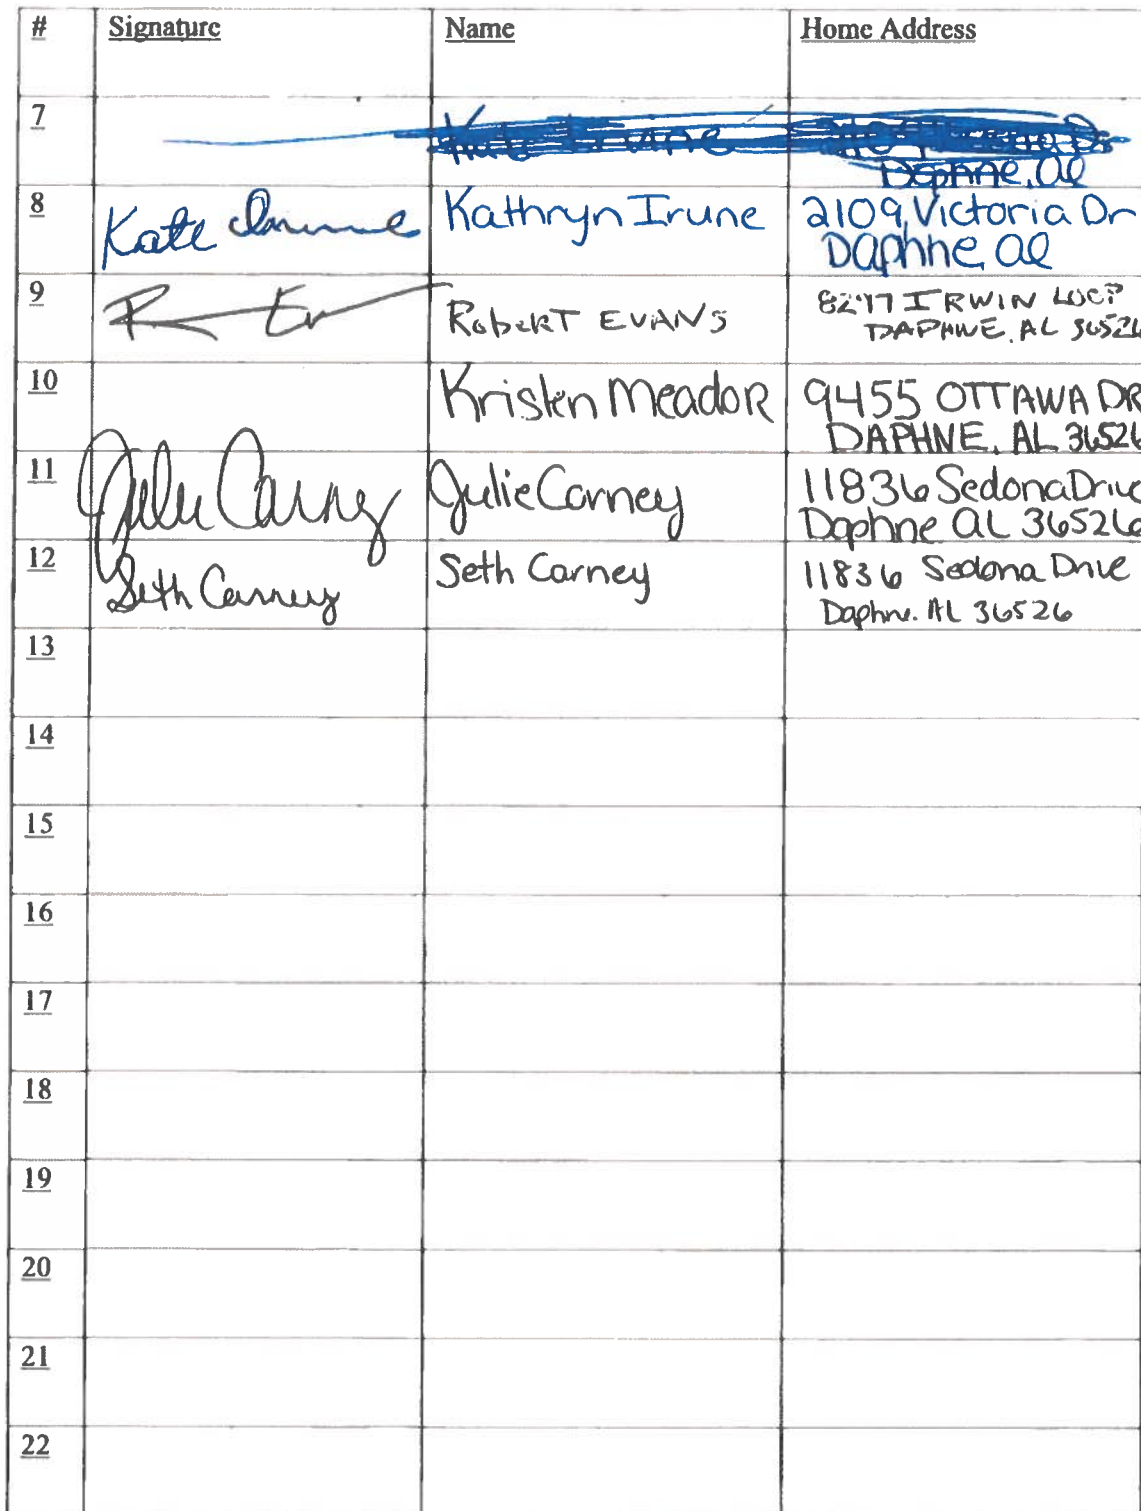 # Signature Name Home Address
7
Daphne, Al
8 Kate Irune Kathryn Irune 2109 Victoria Dr
Daphne, Al
9 Robert EVANS IRWIN LOOP
DAPHNE, AL 36526
10 Kristen Meador 9455 OTTAWA DR
DAPHNE, AL 36526
11 Julie Carney Julie Carney 11836 Sedona Drive
Daphne AL 36526
12 Seth Carney Seth Carney 11836 Sedona Drive
Daphne. AL 36526
13
14
15
16
17
18
19
20
21
22